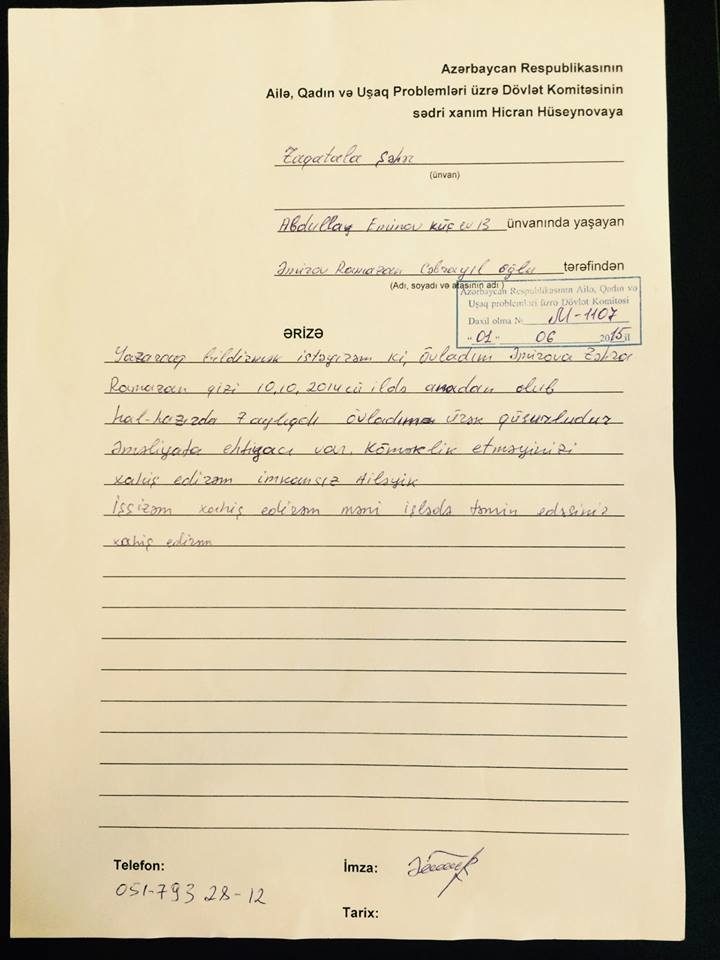 Azərbaycan Respublikasının
Ailə, Qadın və Uşaq Problemləri üzrə Dövlət Komitəsinin
sədri xanım Hicran Hüseynovaya
Zaqatala şəhr
(ünvan)
Abdullay Eminov küç ev 13 ünvanında yaşayan
Əmirov Ramazan Cəbrayıl oğlu tərəfindən
(Adı, soyadı və atasının adı)
Azərbaycan Respublikasının Ailə, Qadın və
Uşaq problemləri üzrə Dövlət Komitəsi
Daxil olma № M-1107
"01" 06 2015 il
ƏRİZƏ
Yazaraq bildirmək istəyirəm ki, övladım Əmirova Zəhra
Ramazan qizi 10,10,2014cü ildə anadan olub
hal-hazırda 7 aylıqdı övladıma ürək qüsurludur
Əməliyata ehtiyacı var. Köməklik etməyinizi
xahiş edirəm imkansız Ailəyik
İşsizəm xahiş edirəm məni işlədə təmin edəsiniz
xahiş edirəm
Telefon:
051-793 28-12
İmza:
Tarix: